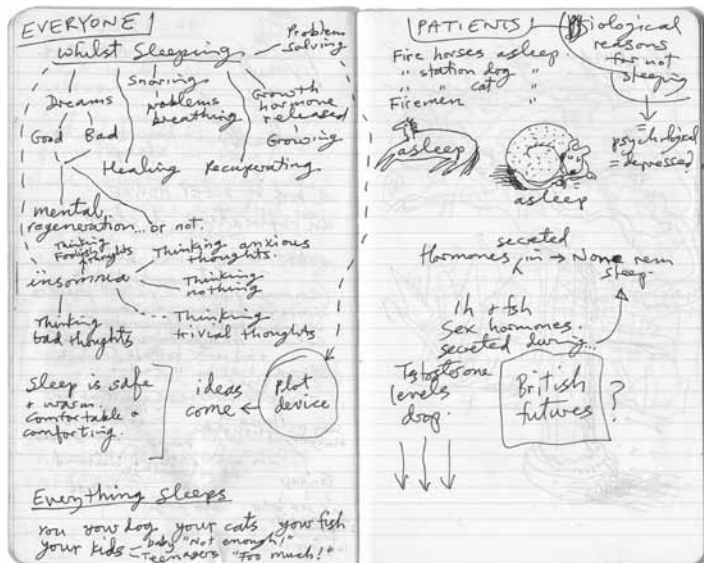 EVERYONE
Whilst Sleeping
Problem
solving
Snoring
problems
breathing
Growth
hormone
released
Growing
Dreams
Good
Bad
Healing
Recuperating
mental
regeneration... or not.
Thinking
Foolish thoughts
Thinking anxious
thoughts.
insomnia
Thinking
nothing
Thinking
trivial thoughts
Thinking
bad thoughts
Sleep is safe
+ warm.
Comfortable +
comforting.
ideas
come
Plot
device
Everything Sleeps
You your dog your cats your fish
your kids - baby "Not enough!"
Teenagers "Too much!"
PATIENTS
Biological
reasons
for not
sleeping
Fire horses asleep.
" station dog "
" cat "
Firemen "
=
psychological
= depressed
asleep
asleep
secreted
Hormones in → None rem
sleep.
lh + fsh
Sex hormones.
secreted during...
Testosterone
levels
drop.
British
futures
?